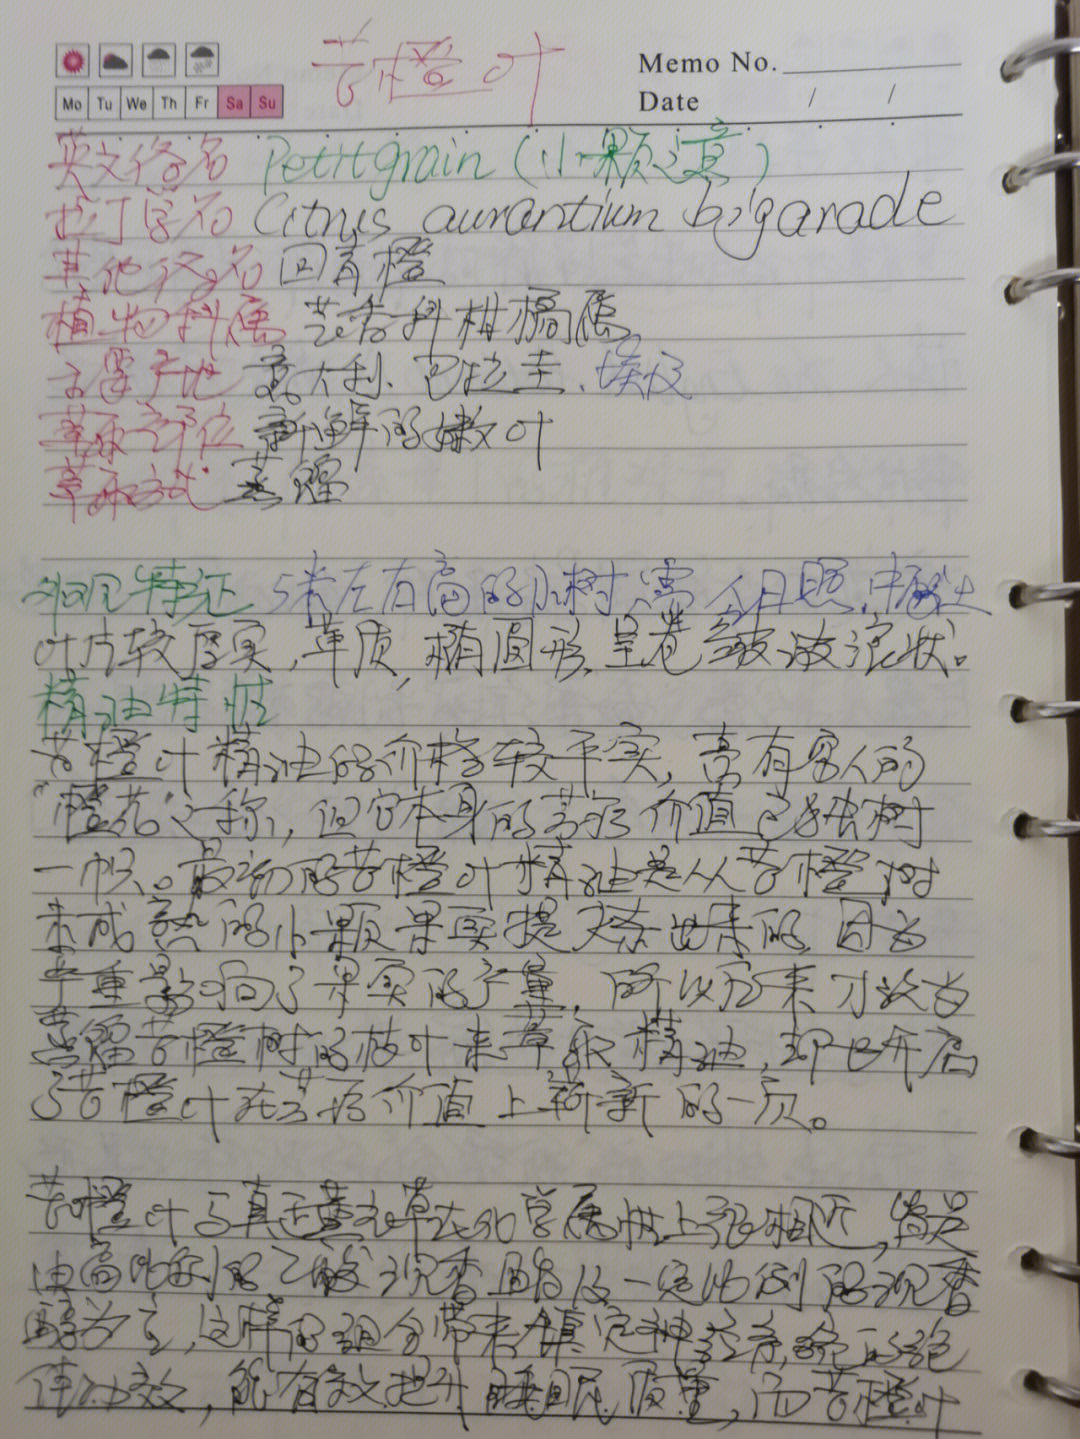 苦橙叶
Memo No.
Date / /
Mo Tu We Th Fr Sa Su
英文俗名 Petitgrain (小颗之意)
拉丁学名 Citrus aurantium bigarade
其他俗名 回青橙
植物科属 芸香科柑橘属
主要产地 意大利、巴拉圭、埃及
萃取部位 新鲜的嫩叶
萃取方式 蒸馏
外观特征 5米左右高的小树,需日照,
叶片较厚实,革质,椭圆形,呈卷皱波浪状。
精油特性
苦橙叶精油的价格较平实,素有穷人的
“橙花”之称,但它本身的芳疗价值已独树
一帜。最初的苦橙叶精油是从苦橙树
未成熟的小颗果实提炼出来的,因为
严重影响了果实的产量,所以后来才改为
蒸馏苦橙树的枝叶来萃取精油,却也开启
了苦橙叶在芳疗价值上崭新的一页。
苦橙叶与真正薰衣草在化学属性上很相近,皆是
由高比例的乙酸沉香酯及一定比例的沉香
醇为主,这样的组合带来镇定神经系统的绝
佳功效,能有效提升睡眠质量,而苦橙叶